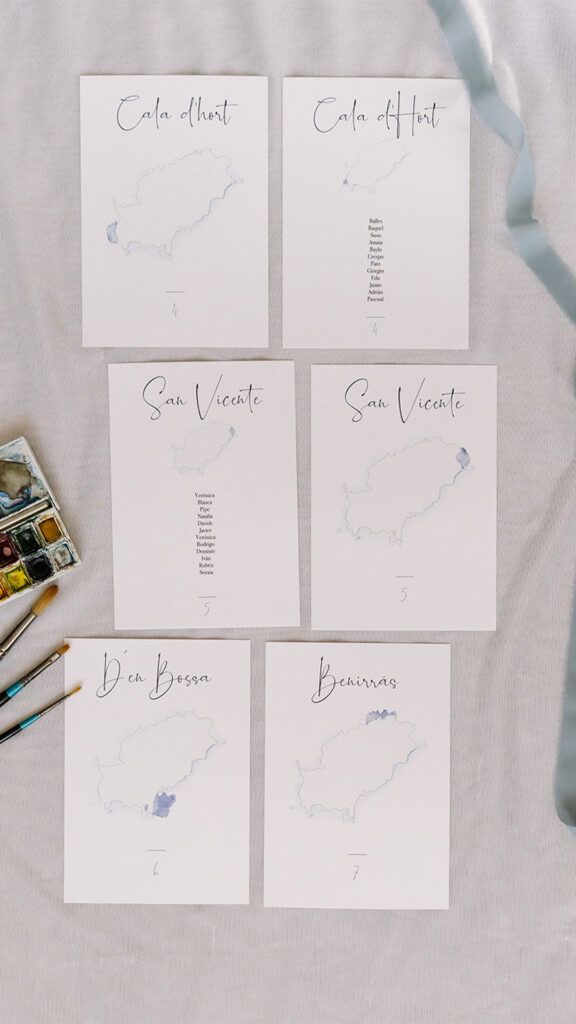 Cala d'hort
4
Cala d'Hort
Ballex
Raquel
Suso
Amaia
Baylo
Crespo
Pato
Giorgio
Edu
Jaime
Adrián
Pascual
4
San Vicente
Verónica
Blanca
Pipe
Natalia
Davide
Javier
Verónica
Rodrigo
Dominic
Iván
Rubén
Sonsia
5
San Vicente
5
D'en Bossa
6
Benirrás
7